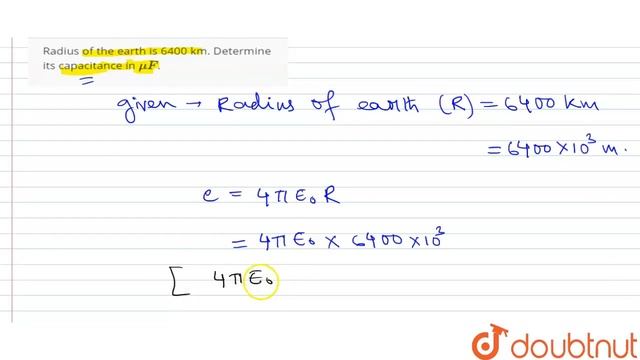 Radius of the earth is 6400 km. Determine
its capacitance in μF.
given → Radius of earth (R) = 6400 km
= 6400×10³ m.
c = 4π ε₀ R
= 4π ε₀ × 6400×10³
[ 4π ε₀
doubtnut